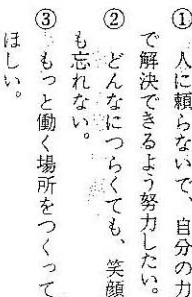 ① 人に頼らないで、自分の力
で解決できるよう努力したい。
② どんなにつらくても、笑顔
も忘れない。
③ もっと働く場所をつくって
ほしい。